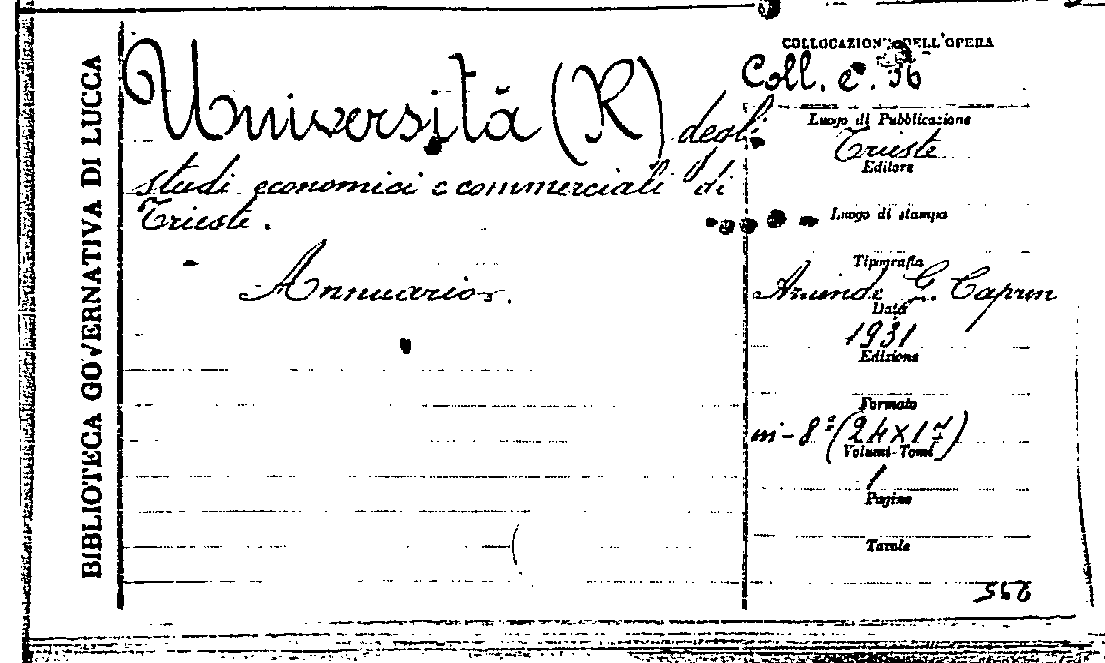 BIBLIOTECA GOVERNATIVA DI LUCCA
Università (R) degli
studi economici e commerciali di
Trieste.
Annuario.
COLLOCAZIONE DELL'OPERA
Coll. e. 36
Luogo di Pubblicazione
Trieste
Editore
Luogo di stampa
Tipografia
G. Caprin
Data
1931
Edizione
Formato
in-8º (24×17)
Volumi-Tomi
1
Pagine
Tavole